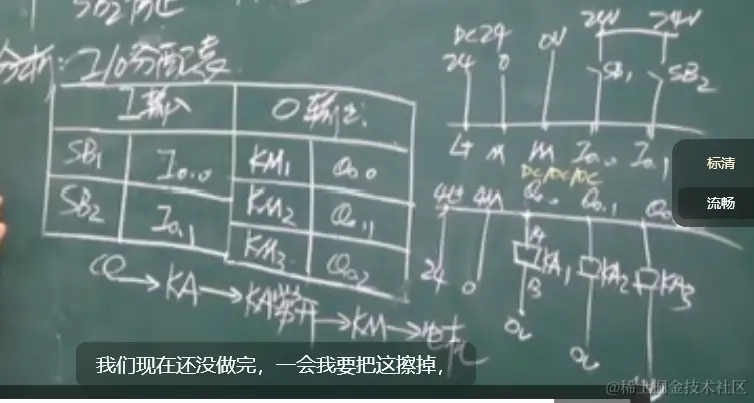 SB2 停止
分析: I/O分配表
I 输入 O 输出:
SB1 I0.0 KM1 Q0.0
SB2 I0.1 KM2 Q0.1
KM3 Q0.2
CQ → KA → KA常开 → KM → 电机
DC24 0V 24V 24V
24 0 SB1 SB2
L+ M M I0.0 I0.1
DC/DC/DC
4L+ 4M Q0.0 Q0.1 Q0
24 0 KA1 KA2 KA3
0V 0V
标清
流畅
我们现在还没做完，一会我要把这擦掉，
@稀土掘金技术社区